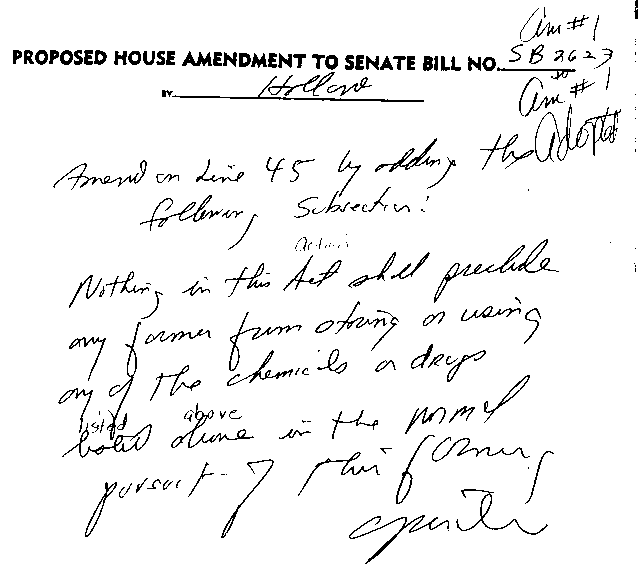 Am #1
PROPOSED HOUSE AMENDMENT TO SENATE BILL NO. SB 2623
to
Am #1
BY Holland
Adopted
Amend on Line 45 by adding the
following Subsection:
Nothing in this Act shall preclude
any farmer from storing or using
any of the chemicals or drugs
listed above
listed above in the normal
pursuit of this farming